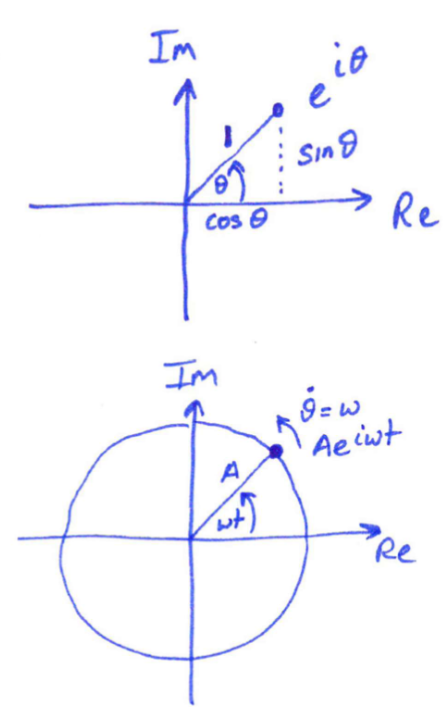 Im
e^{iθ}
1
sin θ
θ
cos θ
Re
Im
θ̇ = ω
A e^{iωt}
A
ωt
Re